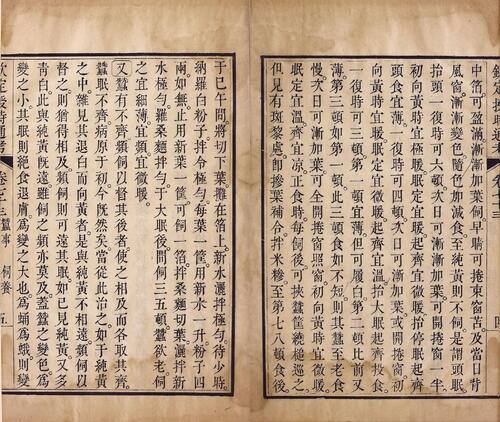 中箔可盈滿漸漸加葉飼早晴可捲東窗苫及當日背
風窗漸漸變色隨色加減食至純黃則不飼是謂頭眠
抬頭一復時可六頓次日可漸漸加葉可開捲窗一半
初向黃時宜暖眠定宜暖起齊宜微暖擡停眠起齊
頭食宜薄一復時可四頓次日可漸漸加葉或開捲窗初
向黃時宜暖眠定宜微暖起齊宜溫抬大眠起齊投食
一復時可三頓第一頓宜薄但可覆白第二頓比前又
薄第三頓如第一頓此三頓食如不短則其蠶至老食
慢次日可漸加葉可全開捲窗照窗初向黃時宜微暖
眠定宜溫齊宜凉正食時每飼後可挾蠶筐繞槌巡之
但見有斑黎處即摻葉補合拌米糝至第七八頓食後
于巳午間將切下葉攤在箔上新水灑拌極勻待少時
納羅白粉子拌令極勻每葉一筐用新水一升粉子四
兩如無止用新葉一筐可飼一箔拌桑麵切葉灑拌新
水極勻羅桑麵拌勻于大眠後間飼三五頓蠶欲老飼
之宜細薄宜頻宜微暖
又蠶有不齊頻飼以督其後者使之相及而各取其齊
蠶眠不齊病原于初今既然矣當從此治之如于純黃
之中雜見其退白而向黃者是與純黃不相遠頻飼以
督之則猶得相及頻飼則可遠其眠如已見純黃又多
青白此與純黃既遠雖飼之頻亦莫及蓋蠶之變色爲
變之小其眠則絕食退膚爲變之大也爲蛹爲蛾則變
欽定授時通考 卷七十三 蠶事 飼養 五